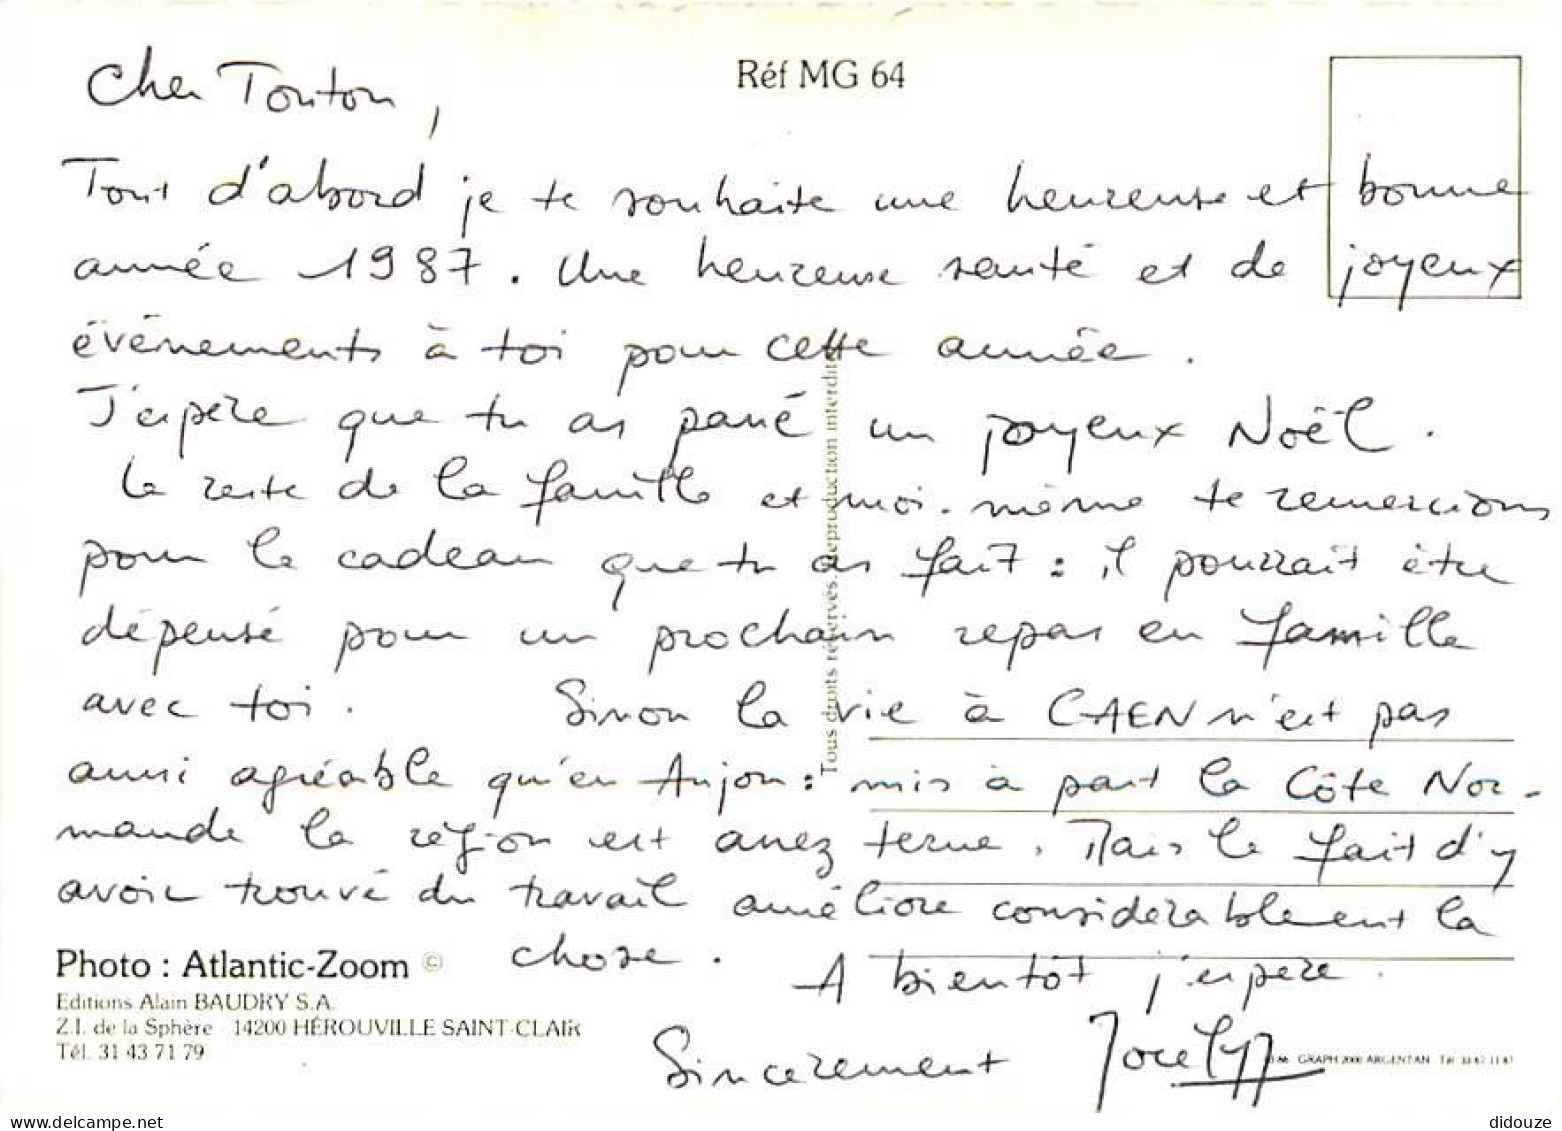 Réf MG 64
Cher Tonton,
Tout d'abord je te souhaite une heureuse et bonne
année 1987. Une heureuse santé et de joyeux
événements à toi pour cette année.
J'espère que tu as passé un joyeux Noël.
Le reste de la famille et moi-même te remercions
pour le cadeau que tu as fait : il pourrait être
dépensé pour un prochain repas en famille
avec toi. Sinon la vie à CAEN n'est pas
aussi agréable qu'en Anjou : mis à part la Côte Nor-
mande la région est assez terne. Mais le fait d'y
avoir trouvé du travail améliore considérablement la
chose. A bientôt j'espère.
Sincèrement Jocelyn
Tous droits réservés. Reproduction interdite
Photo : Atlantic-Zoom ©
Editions Alain BAUDRY S.A.
Z.I. de la Sphère - 14200 HÉROUVILLE SAINT-CLAIR
Tél. 31 43 71 79
86 GRAPH 2000 ARGENTAN
delcampe.net
didouze